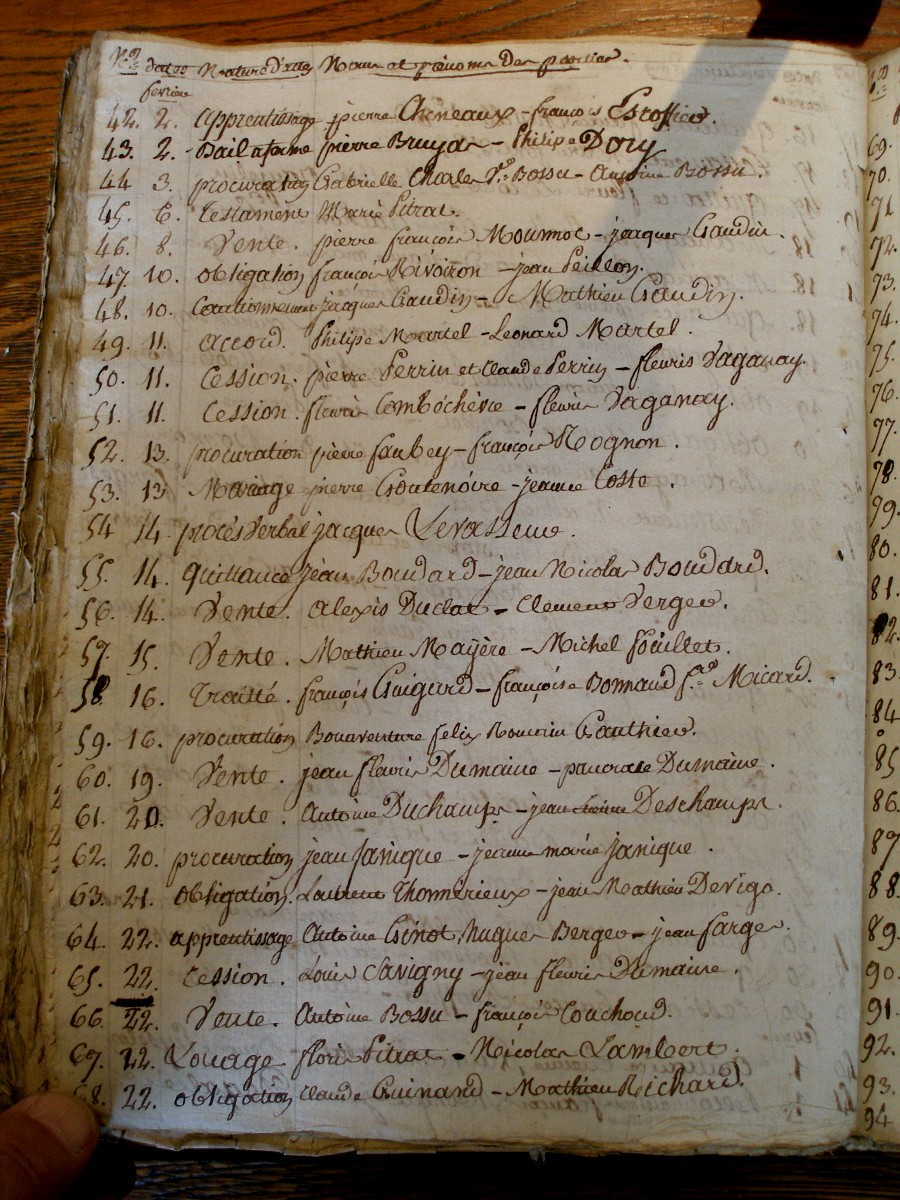 Nos dattes Nature d'actes Noms et prénoms des parties.
fevrier
42. 2. apprentissage pierre Cheneaux - françois Escoffier.
43. 2. Bail a ferme pierre Bruyas - Philipe Dory
44 3. procuration Gabrielle Charles Ve. Bossu - Antoine Bossu.
45. 6. testament Marie Pitrat.
46. 8. Vente. pierre françois Mournot - jacques Gaudin.
47. 10. obligation françois Rivoiron - jean Peillon.
48. 10. Cautionnement jacques Gaudin - Mathieu Gaudin.
49. 11. accord. Philipe Martel - Leonard Martel.
50. 11. Cession. pierre Perrin et Claude Perrin - fleuris Vaganay.
51. 11. Cession. fleuris Combochère - fleuris Vaganay.
52. 13. procuration pierre faubey - françois Rognon.
53. 13 Mariage pierre Goutenoire - jeanne Coste.
54 14. procès Verbal jacques Levasseur.
55. 14. quittance jean Boudard - jean Nicolas Bouddrd.
56. 14. Vente. alexis Duclos - Clement Verger.
57. 15. Vente. Mathieu Mayère - Michel fouillet.
58. 16. traitté. françois Guigard - françoise Bonnand fe. Micard.
59. 16. procuration Bonaventure felix Romain Gauthier.
60. 19. Vente. jean fleuris Dumaine - pancrace Dumaine.
61. 20. Vente. Antoine Duchamps - jean Deschamps.
62. 20. procuration jean janique - jeanne marie janique.
63. 21. obligation. Laurent Thomérieux - jean Mathieu Devigo.
64. 22. apprentissage Antoine Ginot, hugues Berger - jean farge.
65. 22. Cession. Louis Savigny - jean fleuris Dumaine.
66. 22. Vente. Antoine Bossu - françois Couchoud.
67. 22. Louage floris Pitrat - Nicolas Lambert.
68. 22. obligation Claude Guinand - Mathieu Richard.
69.
70.
71
72.
73.
74.
75.
76.
77.
78.
79.
80.
81.
82.
83.
84
85
86.
87
88.
89.
90.
91.
92.
93.
94